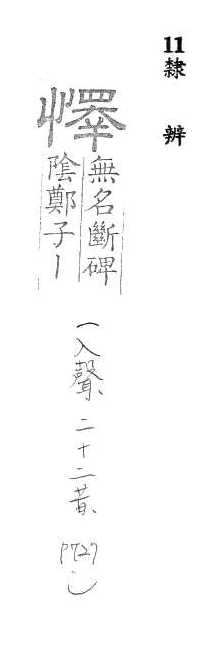 11 隸辨
懌
無名斷碑
陰鄭子丨
(入聲、二十二昔、P727)